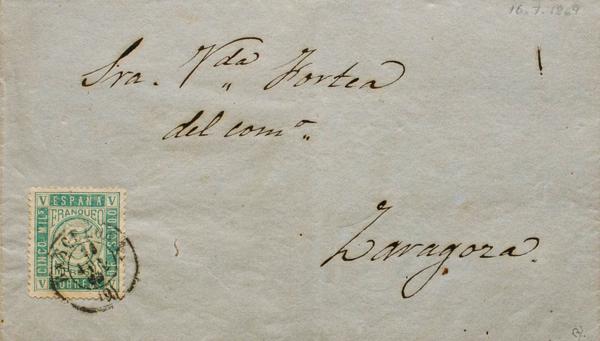 16.7.1869
Sra. Vda Fortea
del como
Zaragoza.
ESPAÑA
FRANQUEO
CINCO MILS
DE ESCUDO
CORREOS
V V
V V